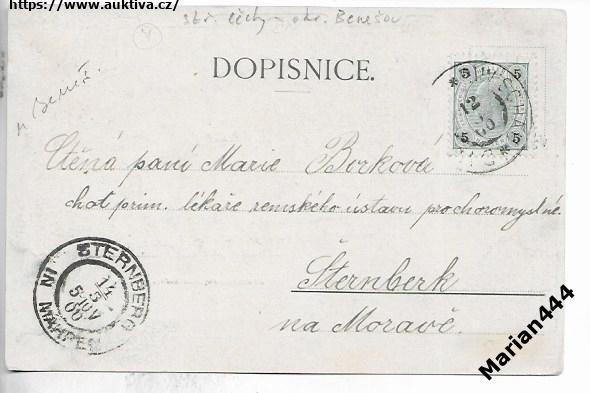 https://www.auktiva.cz/
stř. Čechy - okr. Benešov
DOPISNICE.
5 5
5 5
12
00
Ctěná paní Marie Borková
choť prim. lékaře zemského ústavu pro choromyslné.
Šternberk
na Moravě.
STERNBERG IN MÄHREN
14
5
5-10V
00
Marian444